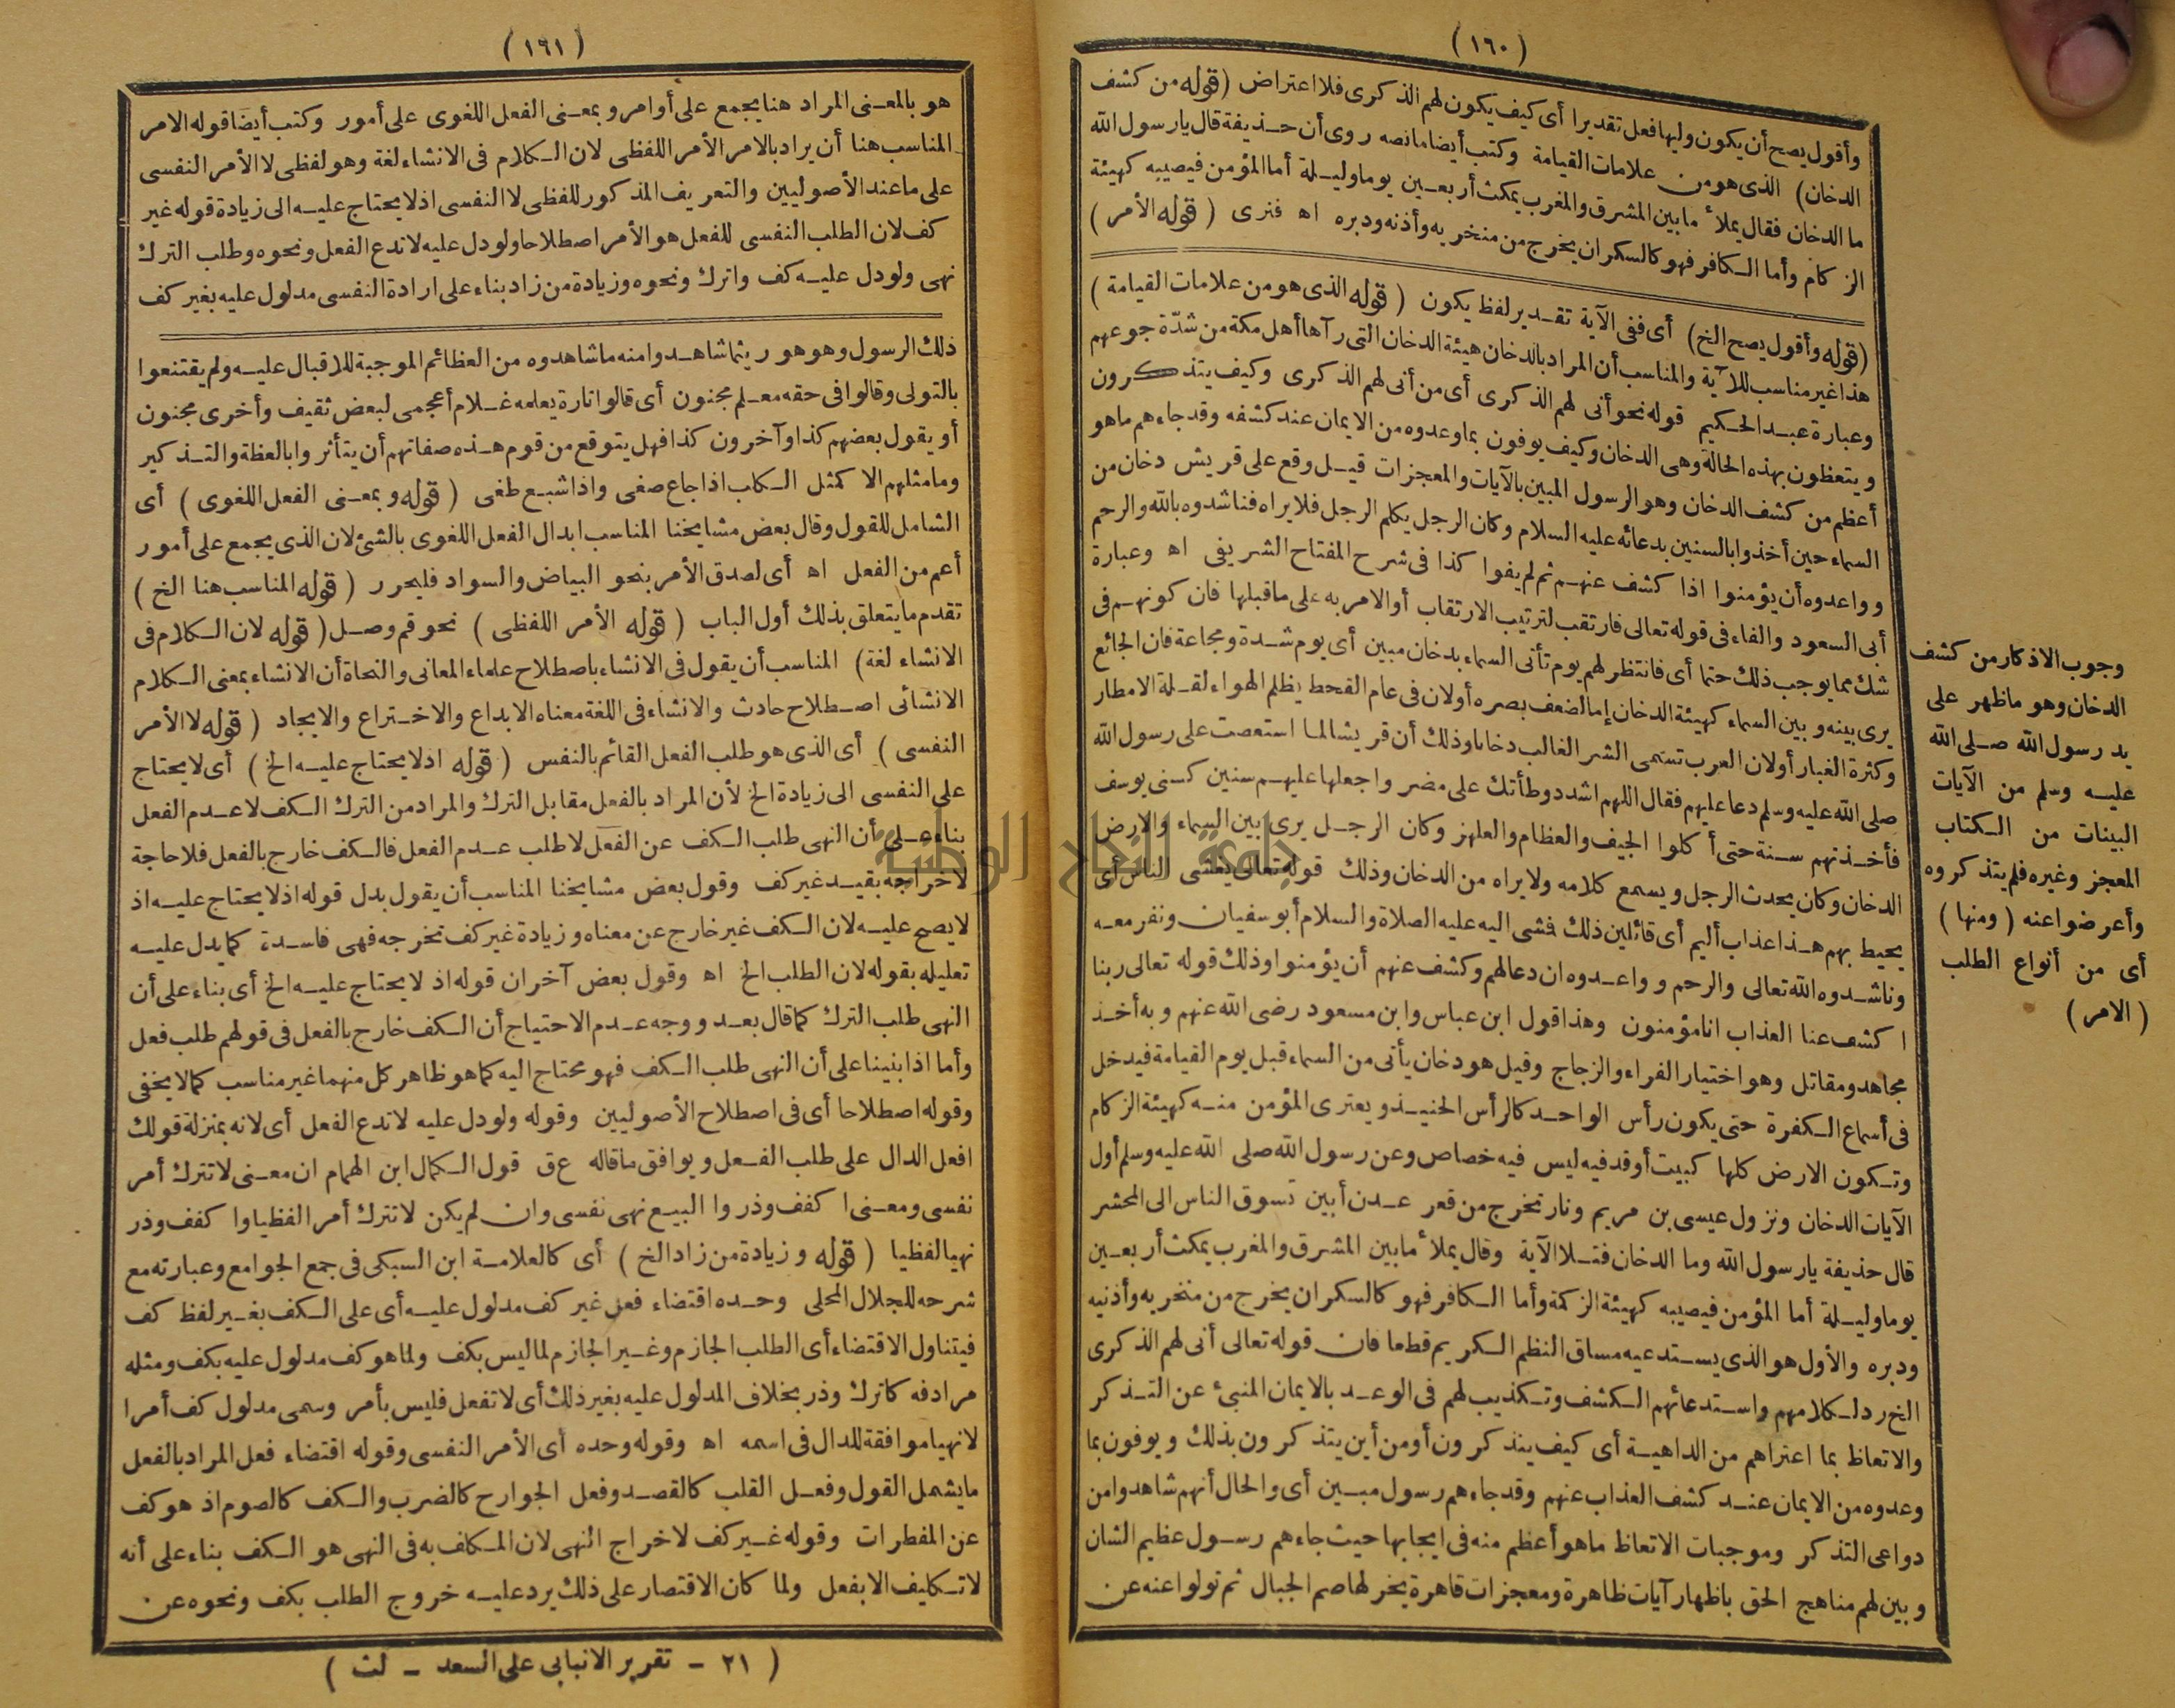 (١٦٠)
وأقول يصح أن يكون وليها فعل تقديرا أى كيف يكون لهم الذكرى فلا اعتراض (قوله من كشف
الدخان) الذى هو من علامات القيامة وكتب أيضا مانصه روى أن حذيفة قال يارسول الله
ما الدخان فقال يملأ ما بين المشرق والمغرب يمكث أربعين يوما وليلة أما المؤمن فيصيبه كهيئة
الزكام وأما الكافر فهو كالسكران يخرج من منخريه وأذنه ودبره اه فنرى (قوله الأمر)
(قوله وأقول يصح الخ) أى ففى الآية تقدير لفظ يكون (قوله الذى هو من علامات القيامة)
هذا غير مناسب للآية والمناسب أن المراد بالدخان هيئة الدخان التى رآها أهل مكة من شدّة جوعهم
وعبارة عبد الحكيم قوله نحو أنى لهم الذكرى أى من أنى لهم الذكرى وكيف يتذكرون
ويتعظون بهذه الحالة وهى الدخان وكيف يوفون بما وعدوه من الايمان عند كشفه وقد جاءهم ماهو
أعظم من كشف الدخان وهو الرسول المبين بالآيات والمعجزات قيل وقع على قريش دخان من
السماء حين أخذوا بالسنين بدعائه عليه السلام وكان الرجل يكلم الرجل فلا يراه فناشدوه بالله والرحم
وواعدوه أن يؤمنوا اذا كشف عنهم ثم لم يفوا كذا فى شرح المفتاح الشريفى اه وعبارة
أبى السعود والفاء فى قوله تعالى فارتقب لترتيب الارتقاب أو الامر به على ماقبلها فان كونهم فى
شك مما يوجب ذلك حتما أى فانتظر لهم يوم تأتى السماء بدخان مبين أى يوم شدة ومجاعة فان الجائع
يرى بينه وبين السماء كهيئة الدخان إما لضعف بصره أولان فى عام القحط يظلم الهواء لقلة الامطار
وكثرة الغبار أولان العرب تسمى الشر الغالب دخانا وذلك أن قريشا لما استعصت على رسول الله
صلى الله عليه وسلم دعا عليهم فقال اللهم اشدد وطأتك على مضر واجعلها عليهم سنين كسنى يوسف
فأخذتهم سنة حتى أكلوا الجيف والعظام والعلهز وكان الرجل يرى بين السماء والارض
الدخان وكان يحدث الرجل ويسمع كلامه ولا يراه من الدخان وذلك قوله تعالى يغشى الناس أى
يحيط بهم هذا عذاب أليم أى قائلين ذلك فمشى اليه عليه الصلاة والسلام أبو سفيان ونفر معه
وناشدوه الله تعالى والرحم وواعدوه ان دعا لهم وكشف عنهم أن يؤمنوا وذلك قوله تعالى ربنا
اكشف عنا العذاب انا مؤمنون وهذا قول ابن عباس وابن مسعود رضى الله عنهم وبه أخذ
مجاهد ومقاتل وهو اختيار الفراء والزجاج وقيل هو دخان يأتى من السماء قبل يوم القيامة فيدخل
فى أسماع الكفرة حتى يكون رأس الواحد كالرأس الحنيذ ويعترى المؤمن منه كهيئة الزكام
وتكون الارض كلها كبيت أوقد فيه ليس فيه خصاص وعن رسول الله صلى الله عليه وسلم أول
الآيات الدخان ونزول عيسى بن مريم ونار تخرج من قعر عدن أبين تسوق الناس الى المحشر
قال حذيفة يارسول الله وما الدخان فتلا الآية وقال يملأ مابين المشرق والمغرب يمكث أربعين
يوما وليلة أما المؤمن فيصيبه كهيئة الزكمة وأما الكافر فهو كالسكران يخرج من منخريه وأذنيه
ودبره والأول هو الذى يستدعيه مساق النظم الكريم قطعا فان قوله تعالى أنى لهم الذكرى
الخ رد لكلامهم واستدعائهم الكشف وتكذيب لهم فى الوعد بالايمان المنبئ عن التذكر
والاتعاظ بما اعتراهم من الداهية أى كيف يتذكرون أومن أين يتذكرون بذلك ويوفون بما
وعدوه من الايمان عند كشف العذاب عنهم وقد جاءهم رسول مبين أى والحال أنهم شاهدوا من
دواعى التذكر وموجبات الاتعاظ ماهو أعظم منه فى ايجابها حيث جاءهم رسول عظيم الشان
وبين لهم مناهج الحق باظهار آيات ظاهرة ومعجزات قاهرة يخر لها صم الجبال ثم تولوا عنه عن
وجوب الاذكار من كشف
الدخان وهو ماظهر على
يد رسول الله صلى الله
عليه وسلم من الآيات
البينات من الكتاب
المعجز وغيره فلم يتذكروه
وأعرضوا عنه (ومنها)
أى من أنواع الطلب
(الامر)
(١٦١)
هو بالمعنى المراد هنا يجمع على أوامر وبمعنى الفعل اللغوى على أمور وكتب أيضا قوله الامر
المناسب هنا أن يراد بالامر الأمر اللفظى لان الكلام فى الانشاء لغة وهو لفظى لا الأمر النفسى
على ما عند الأصوليين والتعريف المذكور للفظى لا النفسى اذ لا يحتاج عليه الى زيادة قوله غير
كف لان الطلب النفسى للفعل هو الأمر اصطلاحا ولو دل عليه لا تدع الفعل ونحوه وطلب الترك
نهى ولو دل عليه كف واترك ونحوه وزيادة من زاد بناء على ارادة النفسى مدلول عليه بغير كف
ذلك الرسول وهو هو ريثما شاهدوا منه ما شاهدوه من العظائم الموجبة للاقبال عليه ولم يقتنعوا
بالتولى وقالوا فى حقه معلم مجنون أى قالوا تارة يعلمه غلام أعجمى لبعض ثقيف وأخرى مجنون
أو يقول بعضهم كذا وآخرون كذا فهل يتوقع من قوم هذه صفاتهم أن يتأثروا بالعظة والتذكير
وما مثلهم الا كمثل الكلب اذا جاع صغى واذا شبع طغى (قوله وبمعنى الفعل اللغوى) أى
الشامل للقول وقال بعض مشايخنا المناسب ابدال الفعل اللغوى بالشئ لان الذى يجمع على أمور
أعم من الفعل اه أى لصدق الأمر بنحو البياض والسواد فليحرر (قوله المناسب هنا الخ)
تقدم ما يتعلق بذلك أول الباب (قوله الأمر اللفظى) نحو قم وصل (قوله لان الكلام فى
الانشاء لغة) المناسب أن يقول فى الانشاء باصطلاح علماء المعانى والنحاة أن الانشاء بمعنى الكلام
الانشائى اصطلاح حادث والانشاء فى اللغة معناه الابداع والاختراع والايجاد (قوله لا الأمر
النفسى) أى الذى هو طلب الفعل القائم بالنفس (قوله اذ لا يحتاج عليه الخ) أى لا يحتاج
على النفسى الى زيادة الخ لأن المراد بالفعل مقابل الترك والمراد من الترك الكف لا عدم الفعل
بناء على أن النهى طلب الكف عن الفعل لا طلب عدم الفعل فالكف خارج بالفعل فلا حاجة
لاخراجه بقيد غير كف وقول بعض مشايخنا المناسب أن يقول بدل قوله اذ لا يحتاج عليه اذ
لا يصح عليه لان الكف غير خارج عن معناه وزيادة غير كف تخرجه فهى فاسدة كما يدل عليه
تعليله بقوله لان الطلب الخ اه وقول بعض آخر ان قوله اذ لا يحتاج عليه الخ أى بناء على أن
النهى طلب الترك كما قال بعد ووجه عدم الاحتياج أن الكف خارج بالفعل فى قولهم طلب فعل
وأما اذا بنينا على أن النهى طلب الكف فهو محتاج اليه كما هو ظاهر كل منهما غير مناسب كما لا يخفى
وقوله اصطلاحا أى فى اصطلاح الأصوليين وقوله ولو دل عليه لا تدع الفعل أى لانه بمنزلة قولك
افعل الدال على طلب الفعل ويوافق ما قاله ع ق قول الكمال ابن الهمام ان معنى لا تترك أمر
نفسى ومعنى اكفف وذروا البيع نهى نفسى وان لم يكن لا تترك أمرا لفظيا واكفف وذر
نهيا لفظيا (قوله وزيادة من زاد الخ) أى كالعلامة ابن السبكى فى جمع الجوامع وعبارته مع
شرحه للجلال المحلى وحده اقتضاء فعل غير كف مدلول عليه أى على الكف بغير لفظ كف
فيتناول الاقتضاء أى الطلب الجازم وغير الجازم لما ليس بكف ولما هو كف مدلول عليه بكف ومثله
مرادفه كاترك وذر بخلاف المدلول عليه بغير ذلك أى لا تفعل فليس بأمر وسمى مدلول كف أمرا
لا نهيا موافقة للدال فى اسمه اه وقوله وحده أى الأمر النفسى وقوله اقتضاء فعل المراد بالفعل
ما يشمل القول وفعل القلب كالقصد وفعل الجوارح كالضرب والكف كالصوم اذ هو كف
عن المفطرات وقوله غير كف لاخراج النهى لان المكلف به فى النهى هو الكف بناء على أنه
لا تكليف الا بفعل ولما كان الاقتصار على ذلك يرد عليه خروج الطلب بكف ونحوه عن
(٢١ - تقرير الانبابى على السعد - لث)
جامعة النجاح الوطنية